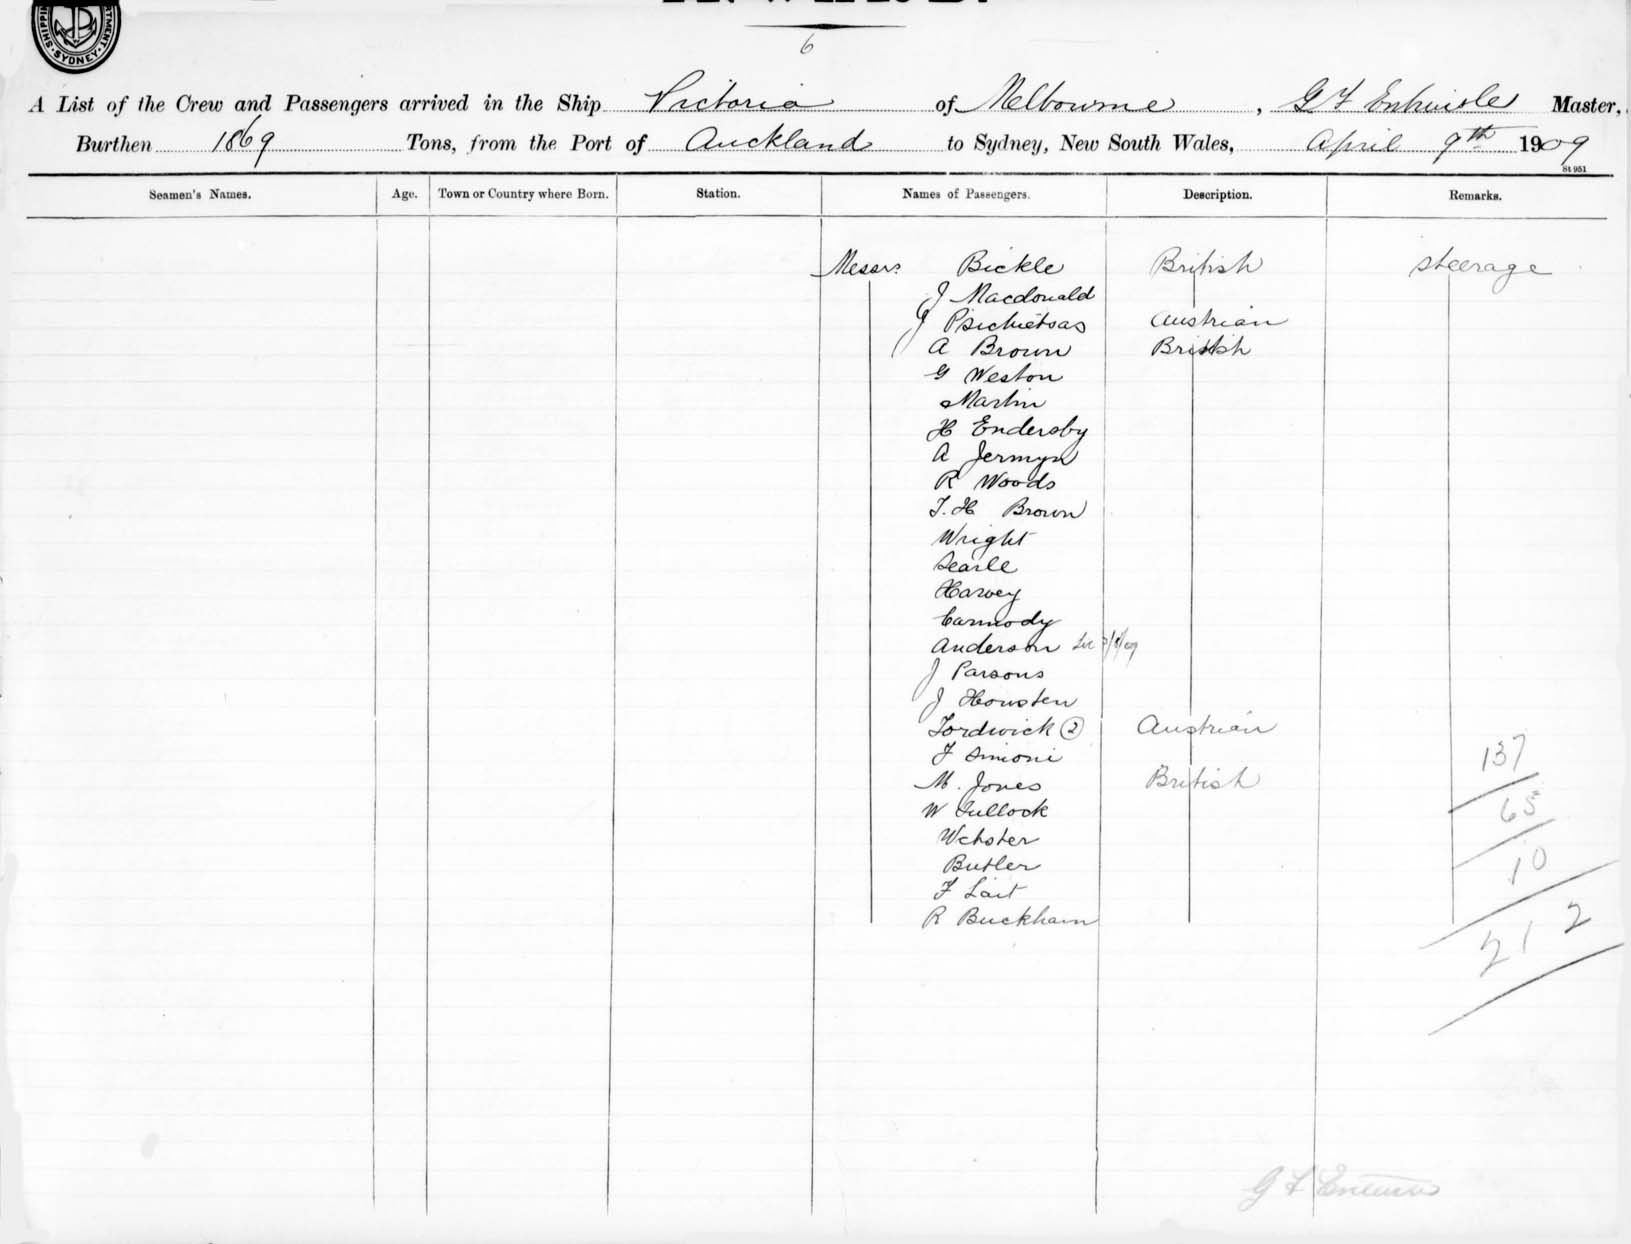 SHIPPING DEPARTMENT SYDNEY
6
A List of the Crew and Passengers arrived in the Ship Victoria of Melbourne, G F Entwisle Master,
Burthen 1869 Tons, from the Port of Auckland to Sydney, New South Wales, April 9th 1909
St 951
Seamen's Names. Age. Town or Country where Born. Station. Names of Passengers. Description. Remarks.
Messrs Bickle British Steerage
J Macdonald
J Austrian
A Brown British
G Weston
Martin
H Endersby
A Jermyn
R Woods
T. H Brown
Wright
Searle
Harvey
Carmody
Anderson
J Parsons
J Housten
Tordwick (2) Austrian
F Simoni
137
M. Jones British
W Tullock 65
Webster
Butler 10
F Lait
R Buckham 212
G F